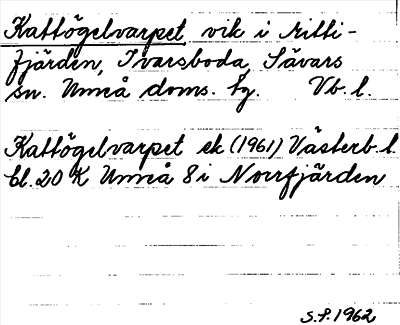 Kattögelvarpet, vik i Mitti-
fjärden, Ivarsboda, Sävars
sn. Umeå doms. tg. Vb. l.
Kattögelvarpet ek (1961) Västerb. l
bl. 20 K Umeå 8 i Norrfjärden
S.P. 1962